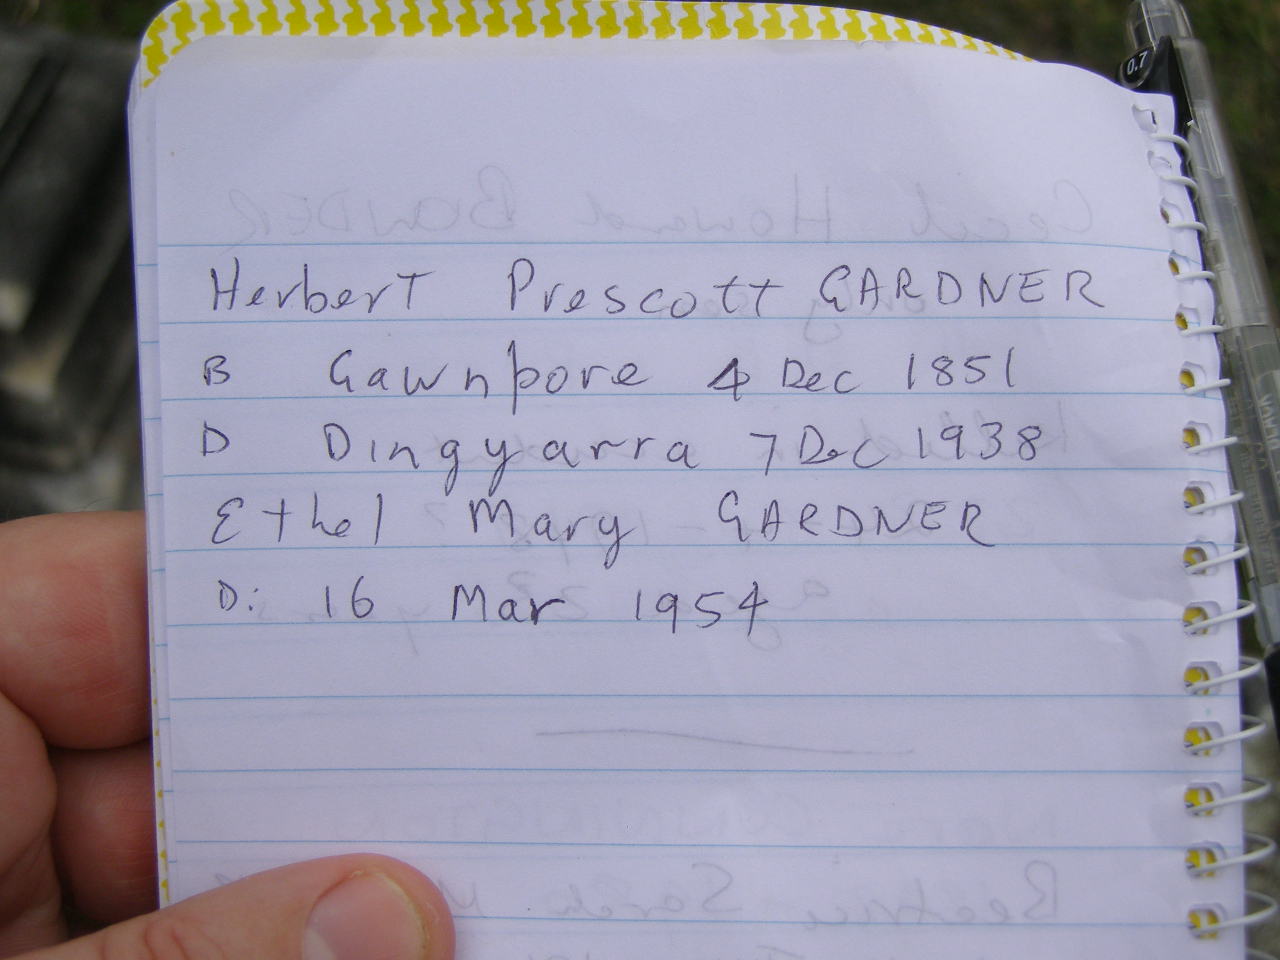 Herbert Prescott GARDNER
B Gawnpore 4 Dec 1851
D Dingyarra 7 Dec 1938
Ethel Mary GARDNER
D: 16 Mar 1954
0.7